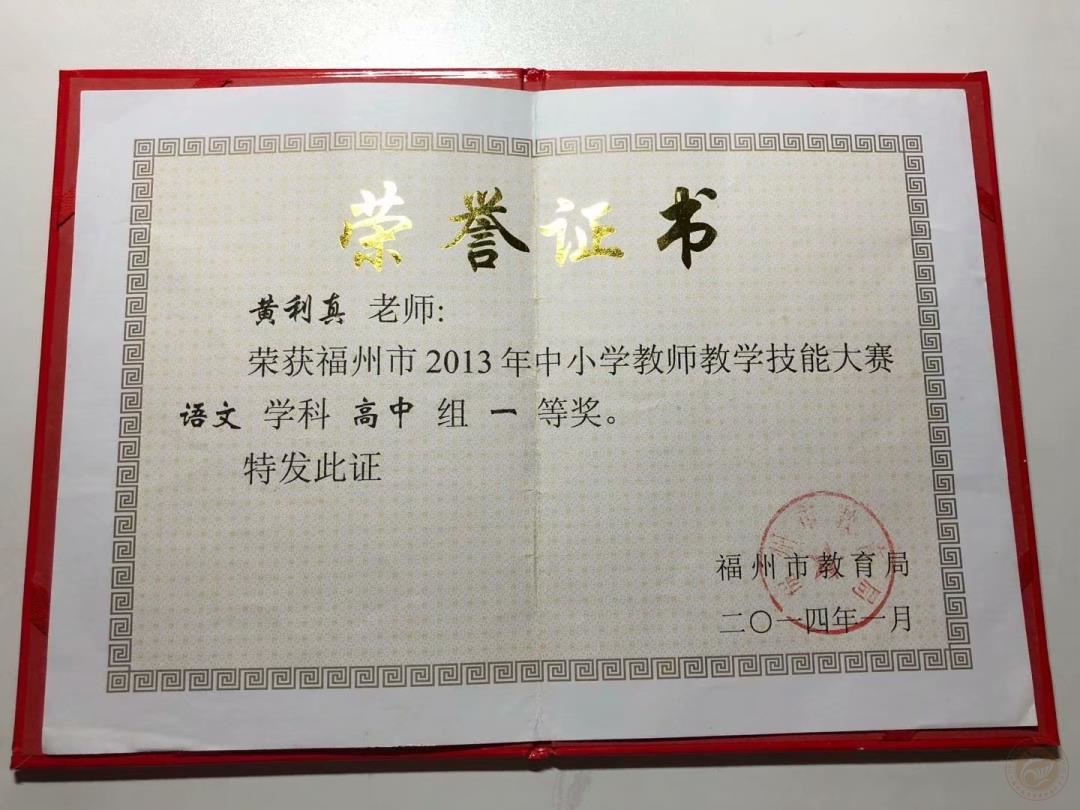 荣誉证书
黄利真 老师:
荣获福州市2013年中小学教师教学技能大赛
语文 学科 高中 组 一 等奖。
特发此证
福州市教育局
二〇一四年一月